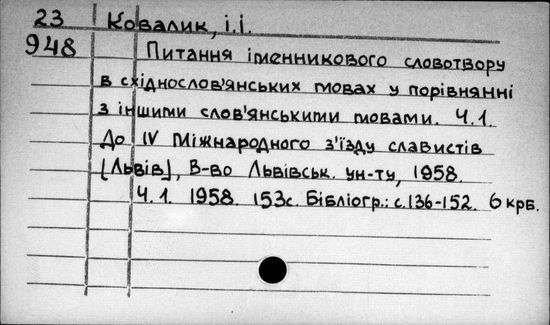 23 Ковалик, і.і.
948 Питання іменникового словотвору
в східнослов'янських мовах у порівнянні
з іншими слов'янськими мовами. Ч.1.
До IV Міжнародного з'їзду славистів
[Львів], В-во Львівськ. ун-ту, 1958.
Ч.1. 1958. 153с. Бібліогр.: с.136-152. 6 крб.